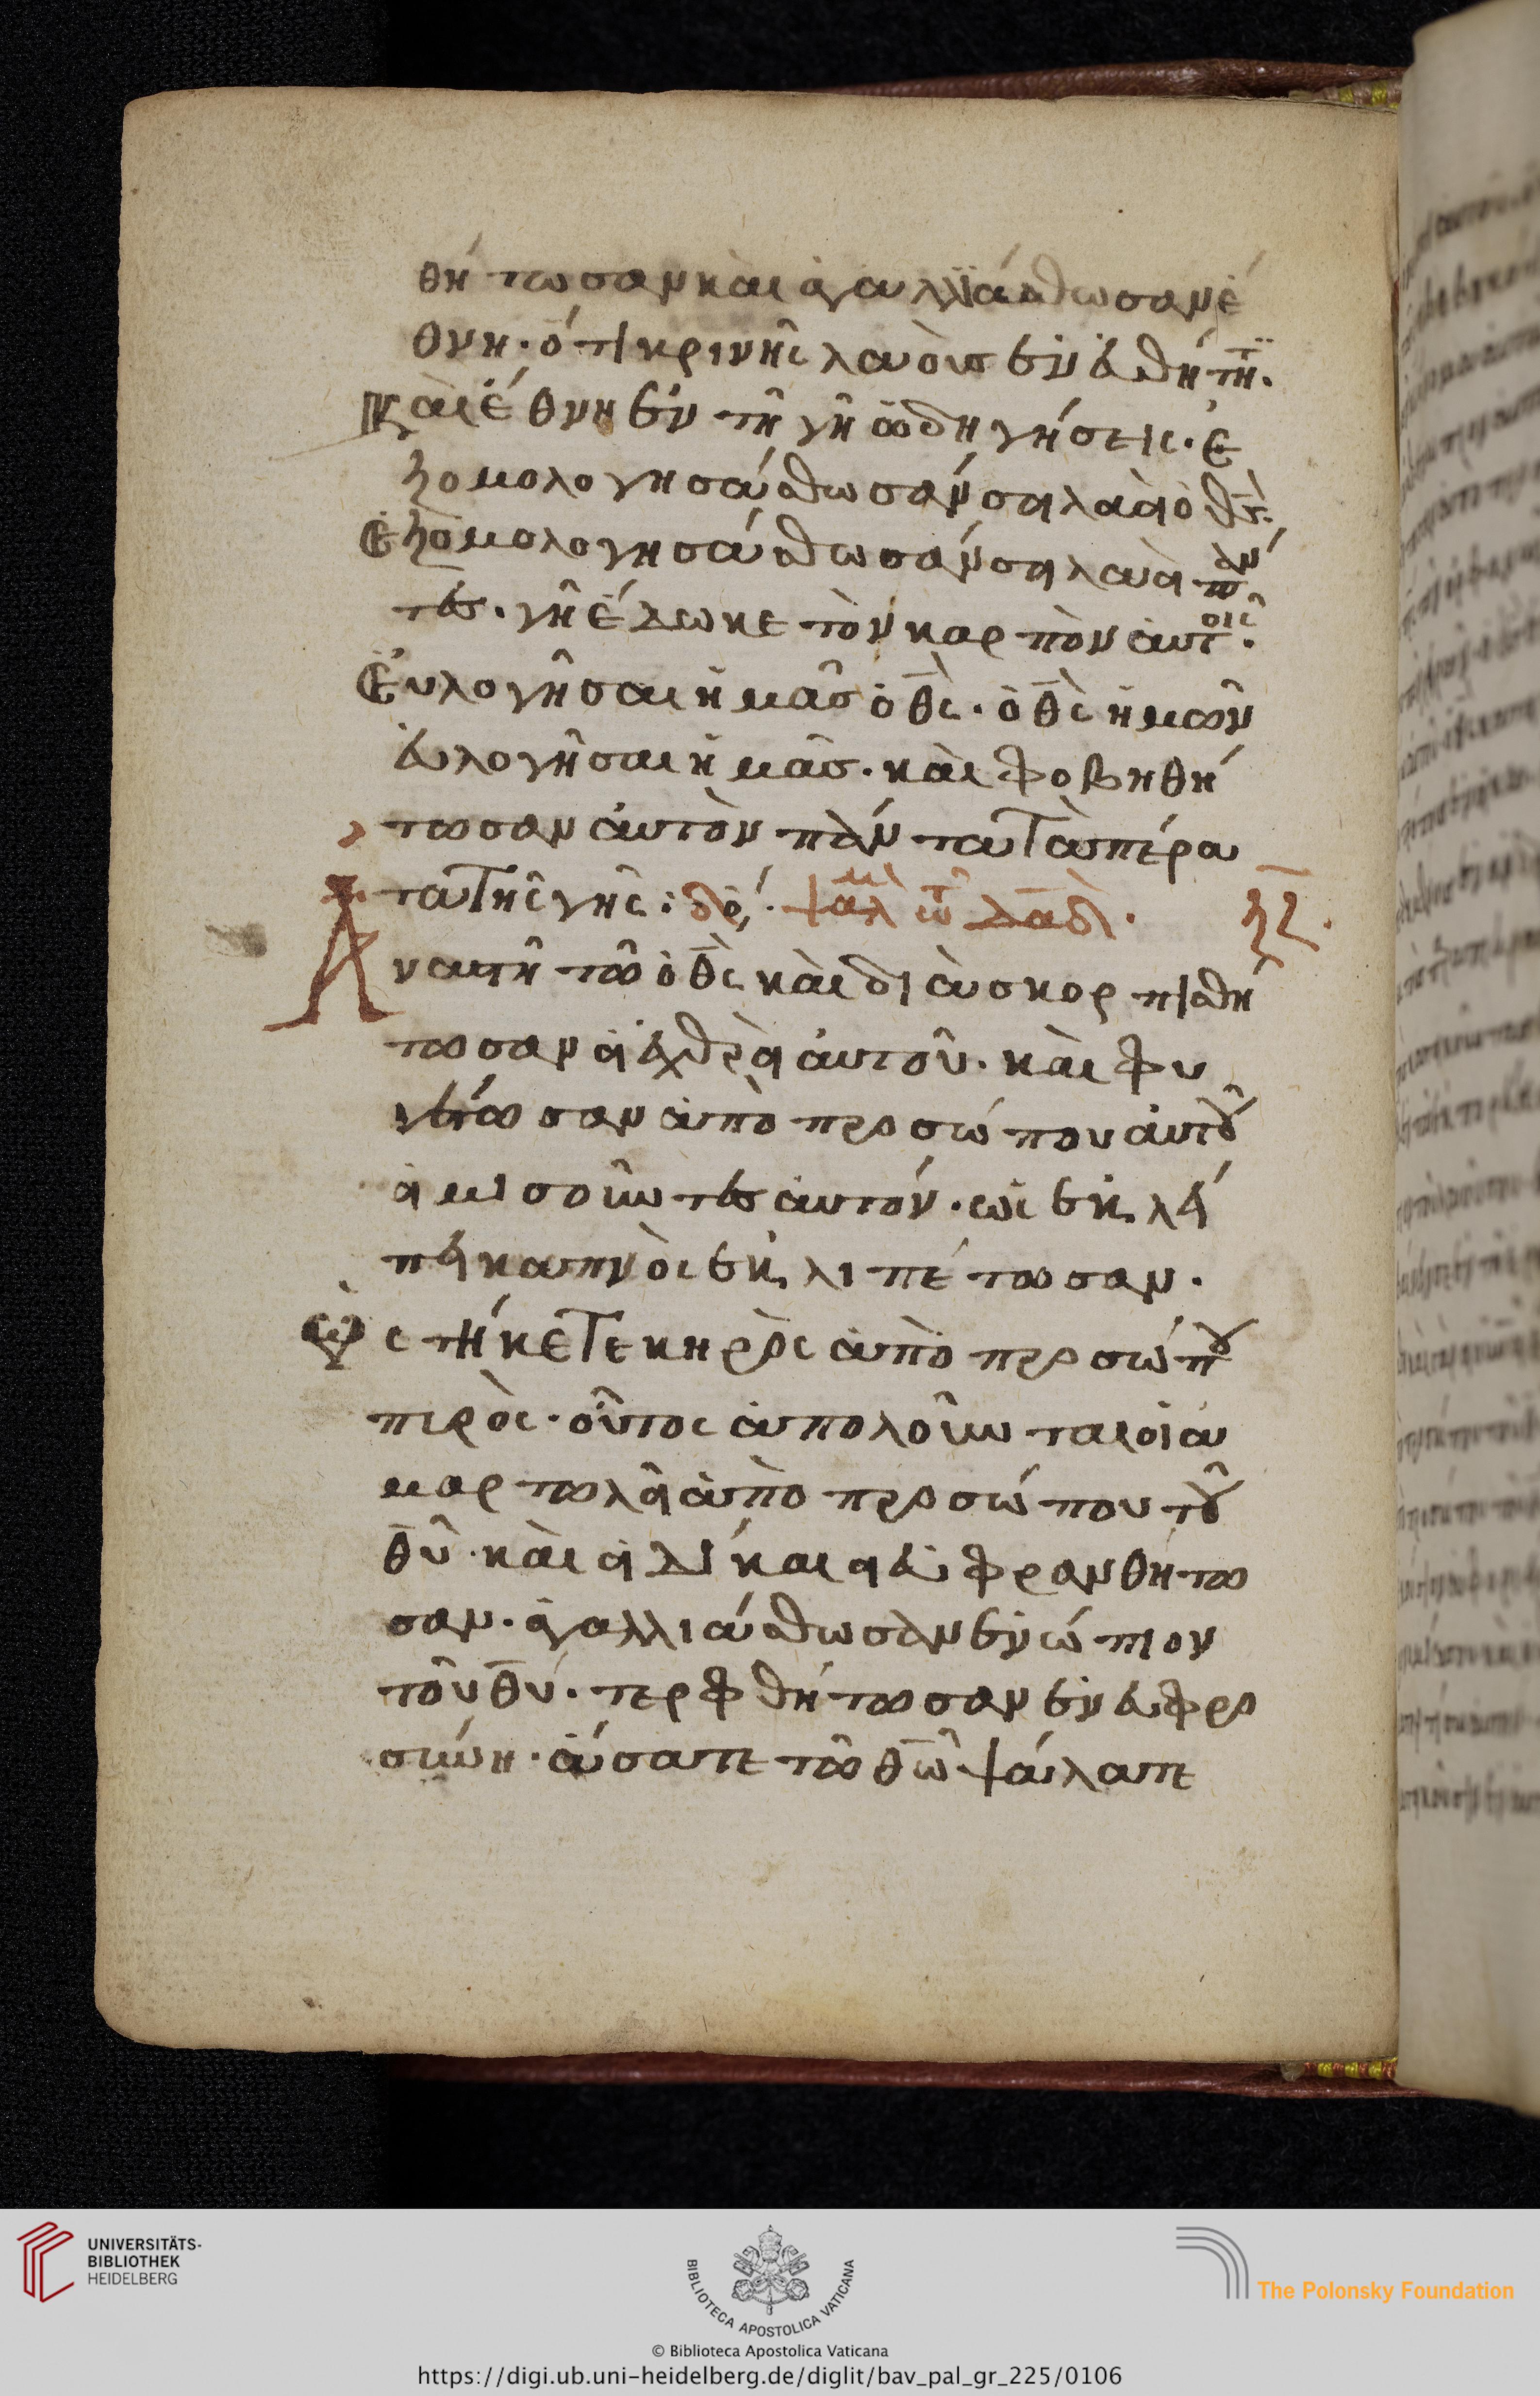 θή τωσαν καὶ ἀγαλλϊάσθωσαν ἔ
θνη· ὅτι κρινῆς λαοὺς ἐν ἐυθήτη̈·
Καὶ ἔθνη ἐν τῆ γῆ ὁδηγήσεις· ἐ
ξομολογησάσθωσάν σοι λαοὶ ὁ θς̄·
Ἐξομολογησάσθωσάν σοι λαοὶ πάν
τες· γῆ ἔδωκε τὸν καρπὸν αὐτοῖς·
Εὐλογῆσαι ἡμᾶς ὁ θς̄· ὁ θς̄ ἡμῶν
ἐυλογῆσαι ἡμᾶς· καὶ φοβηθή
τωσαν αὐτὸν πάντα τὰ πέρα
τα τῆς γῆς: δό· ψαλμ τῶ δαδ· ξζ·
Ἀναστήτω ὁ θς̄ καὶ διασκορπισθή
τωσαν οἱ ἐχθροὶ αὐτοῦ· καὶ φυ
γέτωσαν ἀπὸ προσώπου αὐτοῦ
οἱ μισοῦντες αὐτόν· ὡς ἐκλεί
πει καπνὸς ἐκλιπέτωσαν·
Ὡς τήκεται κηρὸς ἀπὸ προσώπου
πυρὸς· οὕτος ἀπολοῦνται οἱ ἁ
μαρτωλοὶ ἀπὸ προσώπου τοῦ
θῦ· καὶ οἱ δίκαιοι ἐυφρανθήτω
σαν· ἀγαλλιάσθωσαν ἐνώπιον
τοῦ θῦ· τερφθήτωσαν ἐν ἐυφρο
σύνη· ἄσατε τῶ θῶ ψάλατε
UNIVERSITÄTS-
BIBLIOTHEK
HEIDELBERG
BIBLIOTECA APOSTOLICA VATICANA
The Polonsky Foundation
© Biblioteca Apostolica Vaticana
https://digi.ub.uni-heidelberg.de/diglit/bav_pal_gr_225/0106